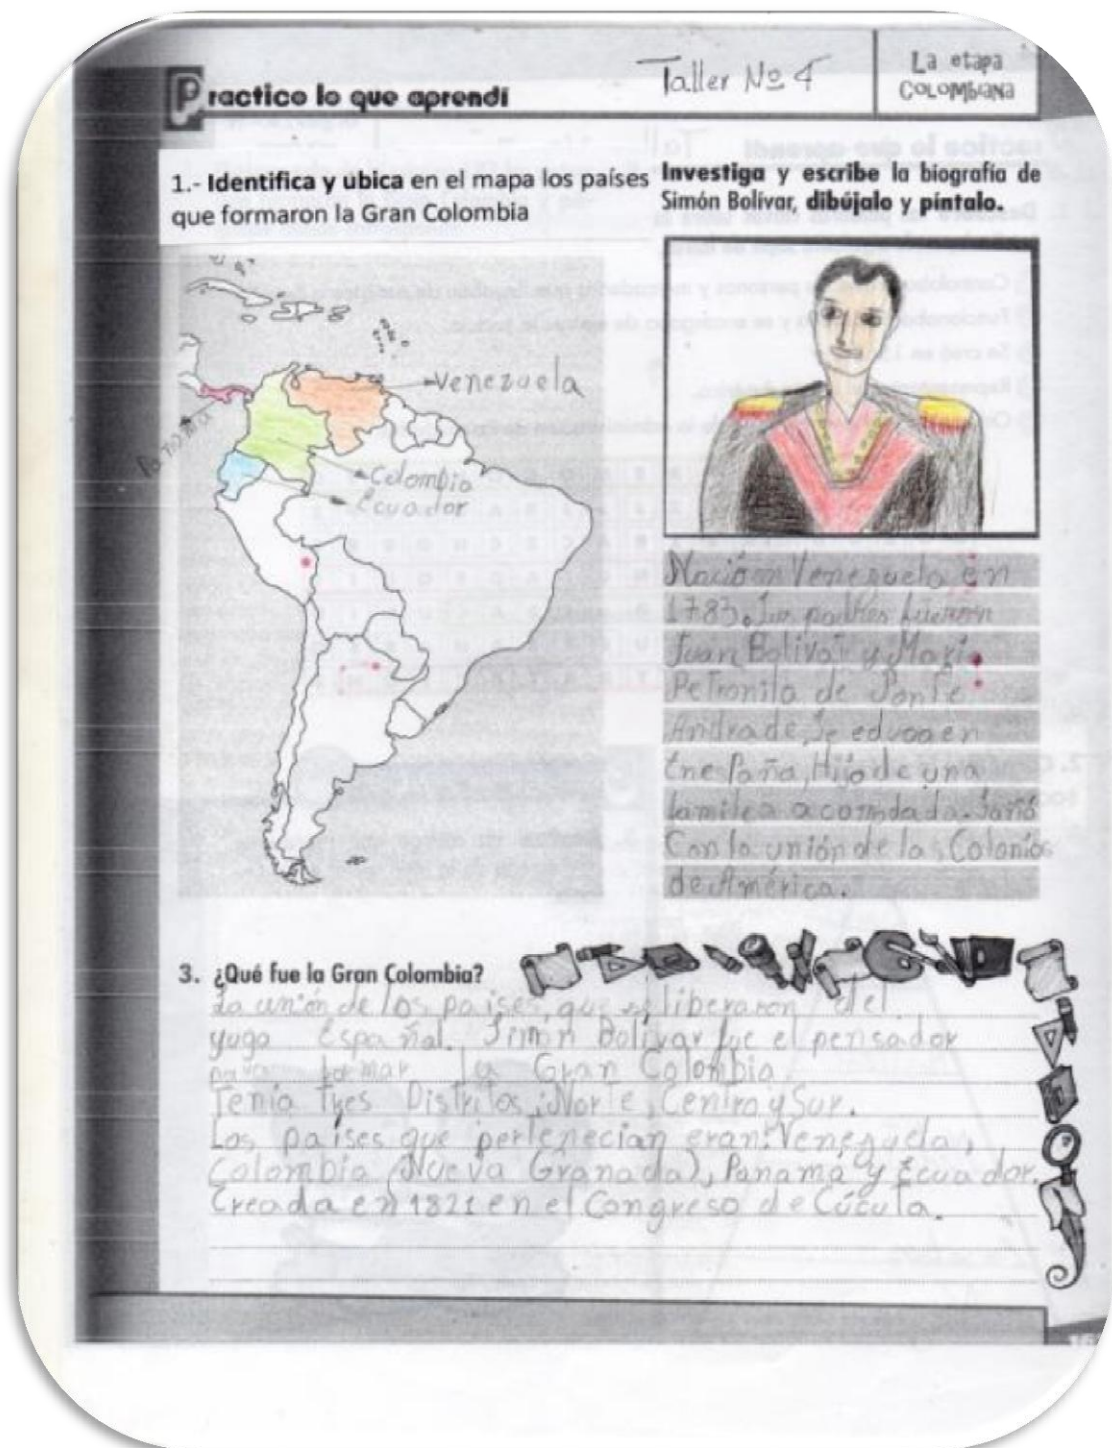 Practico lo que aprendí
Taller Nº 4
La etapa
COLOMBIANA
1.- Identifica y ubica en el mapa los países
que formaron la Gran Colombia
Venezuela
Panamá
Colombia
Ecuador
Investiga y escribe la biografía de
Simón Bolívar, dibújalo y píntalo.
Nació en Venezuela en
1783. Sus padres fueron
Juan Bolivar y María
Petronila de Ponte
Andrade, Se educo en
Hijo de una
acomodada. Soñó
Con la unión de las Colonias
de América.
3. ¿Qué fue la Gran Colombia?
La unión de los países, que se liberaron del
yugo Español. Simón Bolívar fue el pensador
para formar la Gran Colombia.
Tenia tres Distritos; Norte, Centro y Sur.
Los países que pertenecian eran: Venezuela,
Colombia (Nueva Granada), Panamá y Ecuador.
Creada en 1821 en el Congreso de Cúcuta.